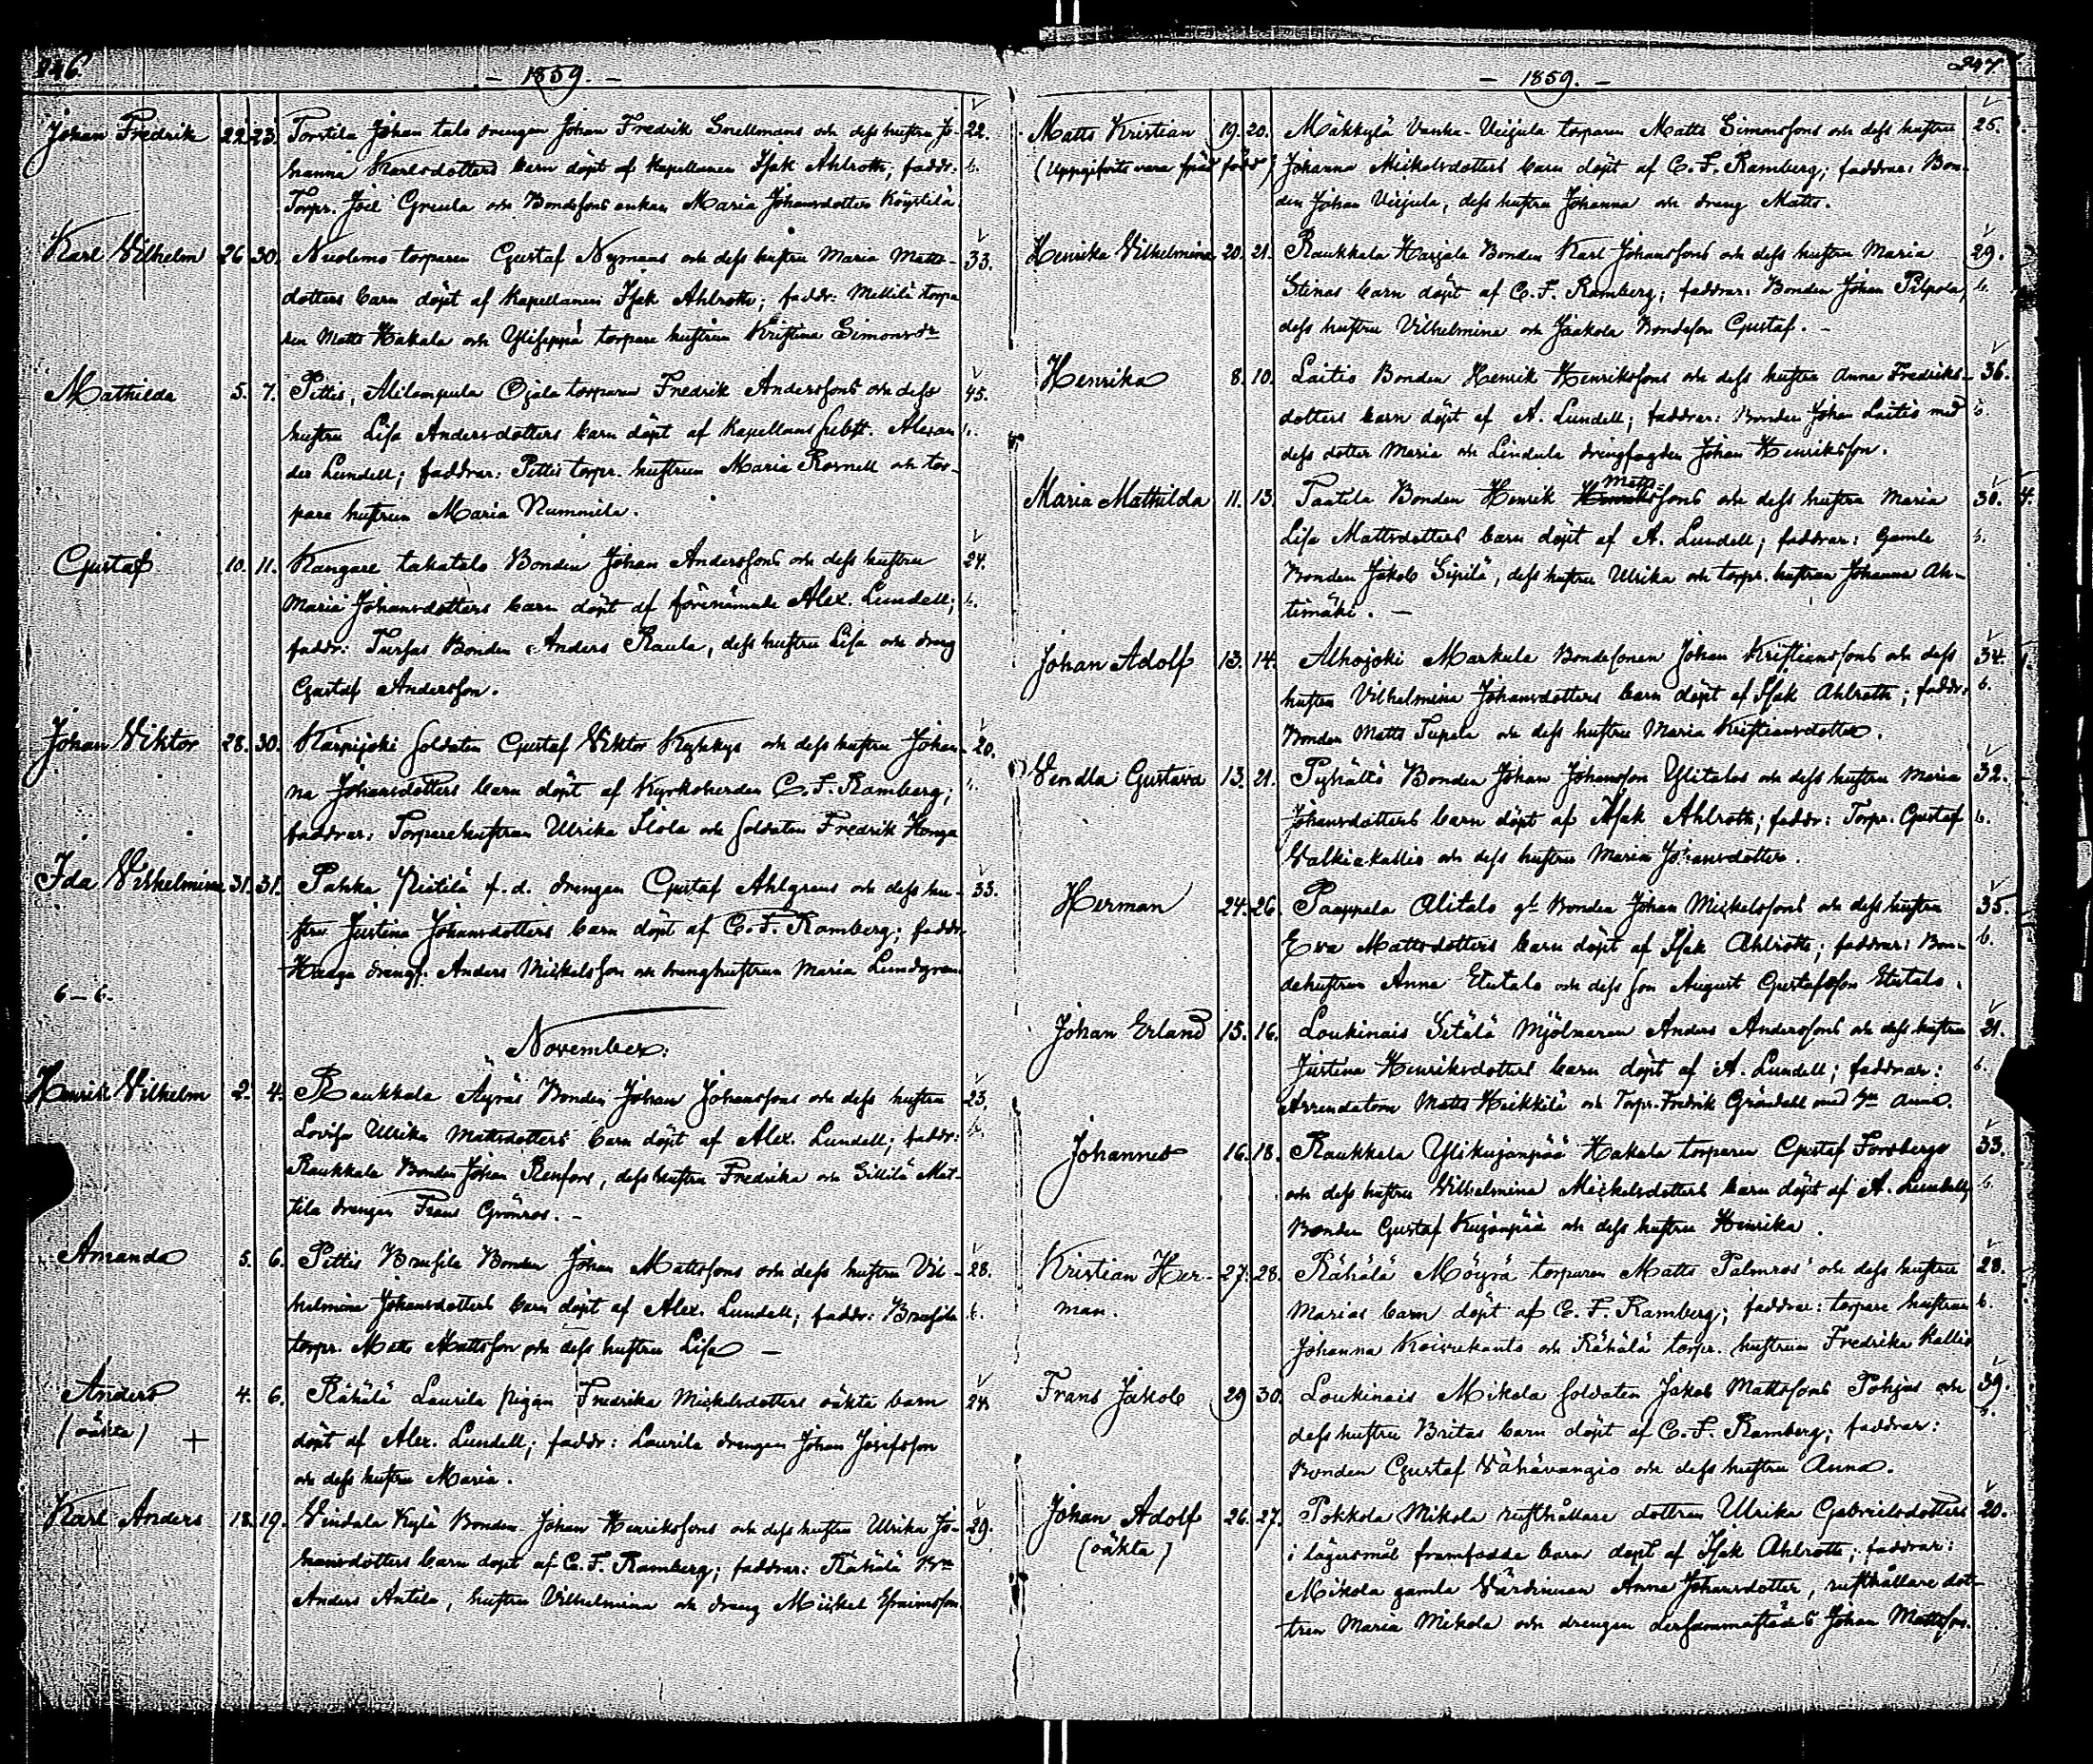 246.
— 1859. —
Johan Fredrik 22. 23. Torrtila Johan talo drengen Johan Fredrik Snellmans och dess hustru Jo- 22.
hanna Karlsdotters barn döpt af Kapellanen Isak Ahlroth; faddr: b.
Torpr. Joel Greula och Bondesons enkan Maria Johansdotter Köystilä
Karl Vilhelm 26 30. Nuolemo torparen Gustaf Nymans och dess hustru Maria Matts- 33.
dotters barn döpt af Kapellanen Isak Ahlroth; faddr: Mellilä torpa
ren Matts Hakala och Yliseppä torpare hustrun Kristina Simonsdr
Mathilda 5. 7. Pittis, Alilempula Ojala torparen Fredrik Anderssons och dess 45.
hustru Lisa Andersdotters barn döpt af Kapellans Alexan b.
der Lundell; faddrar: Pittis torpr. hustrun Maria Rosnell och tor-
pare hustrun Maria Nummila.
Gustaf 10. 11. Kangare takatalo Bonden Johan Anderssons och dess hustru 24.
Maria Johansdotters barn döpt af förenämnde Alex. Lundell; b.
faddr: Tursas Bonden Anders Raula, dess hustru Lisa och dreng
Gustaf Andersson.
Johan Viktor 28. 30. Kärpijoki Soldaten Gustaf Viktor Kyhkys och dess hustru Johan- 20.
na Johansdotters barn döpt af Kyrkoherden C. F. Ramberg; b.
faddrar: Torparehustrun Ulrika Ilola och Soldaten Fredrik Honga
Ida Vilhelmina 31. 31. Pahka Pietilä f.d. drengen Gustaf Ahlgrens och dess hu- 33.
stru Justina Johansdotters barn döpt af C. F. Ramberg; faddr.
Haaga drengf. Anders Mickelsson och drenghustrun Maria Lundgren
6—6.
November:
Henrik Vilhelm 2. 4. Raukkala Äyräs Bonden Johan Johanssons och dess hustru 23.
Lovisa Ulrika Mattsdotters barn döpt af Alex. Lundell; faddr: b.
Raukkala Bonden Johan Renfors, dess hustru Fredrika och Sillilä Mat-
tila drengen Frans Grönros. —
Amanda 5. 6. Pittis Brusila Bonden Johan Mattssons och dess hustru Vil- 28.
helmina Johansdotters barn döpt af Alex. Lundell; faddr: Brusila b.
torpr. Matts Mattsson och dess hustru Lisa —
Anders 4. 6. Rähälä Laurila pigan Fredrika Mickelsdotters oäkta barn 24
(oäkta) + döpt af Alex. Lundell; faddr: Laurila drengen Johan Josefsson
och dess hustru Maria.
Karl Anders 18. 19. Vindala Kylä Bonden Johan Henrikssons och dess hustru Ulrika Jo- 29.
hansdotters barn döpt af C. F. Ramberg; faddrar: Rähälä Bn
Anders Antila, hustru Vilhelmina och dreng Mickel Efraimsson.
247.
— 1859. —
Matts Kristian 19. 20. Mäkkylä Vanha-Uijula torparen Matts Simonssons och dess hustru 25.
(Uppgifvits vara född) Johanna Mickelsdotters barn döpt af C. F. Ramberg; faddrar: Bon-
den Johan Uijula, dess hustru Johanna och dreng Matts.
Henrika Vilhelmina 20. 21. Raukkala Harjala Bonden Karl Johanssons och dess hustru Maria 29.
Stinas barn döpt af C. F. Ramberg; faddrar: Bonden Johan Pilpola, b.
dess hustru Vilhelmina och Jaakola Bondeson Gustaf. —
Henrika 8. 10. Laitis Bonden Henrik Henrikssons och dess hustru Anna Fredriks- 36.
dotters barn döpt af A. Lundell; faddrar: Bonden Johan Laitis med b.
dess dotter Maria och Lindula drengfogden Johan Henriksson.
Maria Mathilda 11. 13. Taatila Bonden Henrik Mattssons och dess hustru Maria 30. 4.
Lisa Mattsdotters barn döpt af A. Lundell; faddrar: Gamle b.
Bonden Jakob Sipilä, dess hustru Ulrika och torpr. hustrun Johanna Ah-
timäki. —
Johan Adolf 13. 14. Alhojoki Markula Bondesonen Johan Kristianssons och dess 34.
hustru Vilhelmina Johansdotters barn döpt af Isak Ahlroth; faddr: b.
Bonden Matts Tupala och dess hustru Maria Kristiansdotter.
Vendla Gustava 13. 21. Pyhältö Bonden Johan Johansson Ylitalos och dess hustru Maria 32.
Johansdotters barn döpt af Isak Ahlroth; faddr: Torpr. Gustaf b.
Valkiakallio och dess hustru Maria Johansdotter.
Herman 24. 26. Paappala Alitalo gl. Bonden Johan Mickelssons och dess hustru 35.
Eva Mattsdotters barn döpt af Isak Ahlroth; faddrar: Bon- b.
dehustrun Anna Etutalo och dess son August Gustafsson Etutalo.
Johan Erland 15. 16. Loukinais Setälä Mjölnaren Anders Anderssons och dess hustru 21.
Justina Henriksdotters barn döpt af A. Lundell; faddrar: b.
Arrendatorn Matts Heikkilä och Torpr. Fredrik Gröndahl med hu Anna.
Johannes 16. 18. Raukkala Ylikujanpää Hakala torparen Gustaf Forsbergs 33.
och dess hustru Vilhelmina Mickelsdotters barn döpt af A. Lundell, b.
Bonden Gustaf Kujanpää och dess hustru Henrika.
Kristian Her- 27. 28. Rähälä Möyrä torparen Matts Palmros' och dess hustru 28.
man. Marias barn döpt af C. F. Ramberg; faddrar: torpare hustrun b.
Johanna Koivukanto och Rähälä torpr. hustrun Fredrika Kallio
Frans Jakob 29 30. Loukinais Mikola Soldaten Jakob Mattssons Pohjas och 39.
dess hustru Britas barn döpt af C. F. Ramberg; faddrar: b.
Bonden Gustaf Vähävangio och dess hustru Anna.
Johan Adolf 26. 27. Pokkola Mikola rusthållare dottren Ulrika Gabrielsdotters 20.
(oäkta) i lägersmål framfödde barn döpt af Isak Ahlroth; faddrar:
Mikola gamla Värdinnan Anna Johansdotter, rusthållare dot-
tren Maria Mikola och drengen dersammastädes Johan Mattsson.